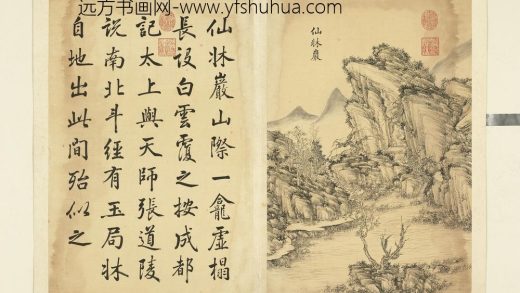 远方书画网-www.yfshuhua.com
仙牀巖
仙牀巖山際一龕虛榻
長设白雲覆之按成都
記太上與天師張道陵
说南北斗經有玉局牀
自地出此間殆似之